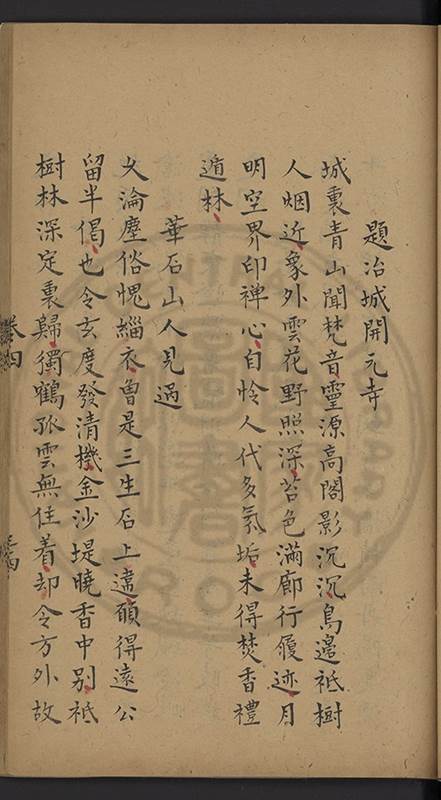 題治城開元寺
城裏青山聞梵音靈源高閣影沉沉鳥邊祗樹
人烟近象外雲花野照深苔色滿廊行履迹月
明空界印禅心自怜人代多氣垢未得焚香禮
遁林
華石山人見過
久淪塵俗愧緇衣曾是三生石上遠願得遠公
留半偈也令玄度發清機金沙堤曉香中別祗
樹林深定裏歸獨鶴孤雲無住着却令方外故
卷四